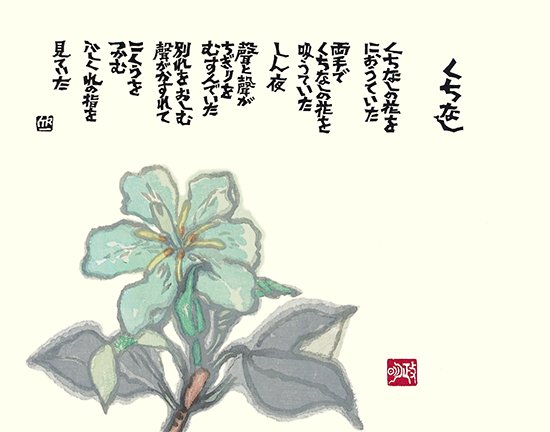 くちなし
くちなしの花を
におっていた
両手で
くちなしの花を
吸うていた
しん夜
聲と聲が
ちぎりを
むすんでいた
別れをおしむ
聲がかすれて
こくうを
つかむ
ふしくれの指を
見ていた